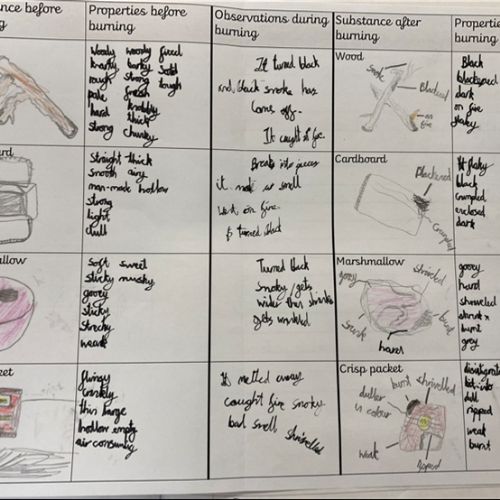 nce before
Properties before burning
Observations during burning
Substance after burning
Propertie
burning
woody
strong
rough
tough
pale
fresh
hard
thick
strong chunky
It turned black
and black smoke has
come off.
It caught on fire.
Wood
Smoke
on fire
Black
dark
on fire
flaky
rd
Straight thick
Smooth airy
man-made hollow
strong
light
dull
Breaks into pieces
it made a smell
went on fire
& turned black
Cardboard
Blackened
Crumpled
flaky
black
Crumpled
enclosed
dark
allow
soft sweet
sticky
gooey
sticky
strechy
weak
Turned black
Smoky gets
wider then shrinks
gets wrinkled
Marshmallow
gooey
shriveled
burnt
gooey
hard
shriveled
burnt
grey
ket
thin large
hollow empty
It melted away
caught fire smoky
bad smell shrivelled
Crisp packet
burnt shrivelled
duller
in colour
weak
ripped
dull
ripped
weak
burnt